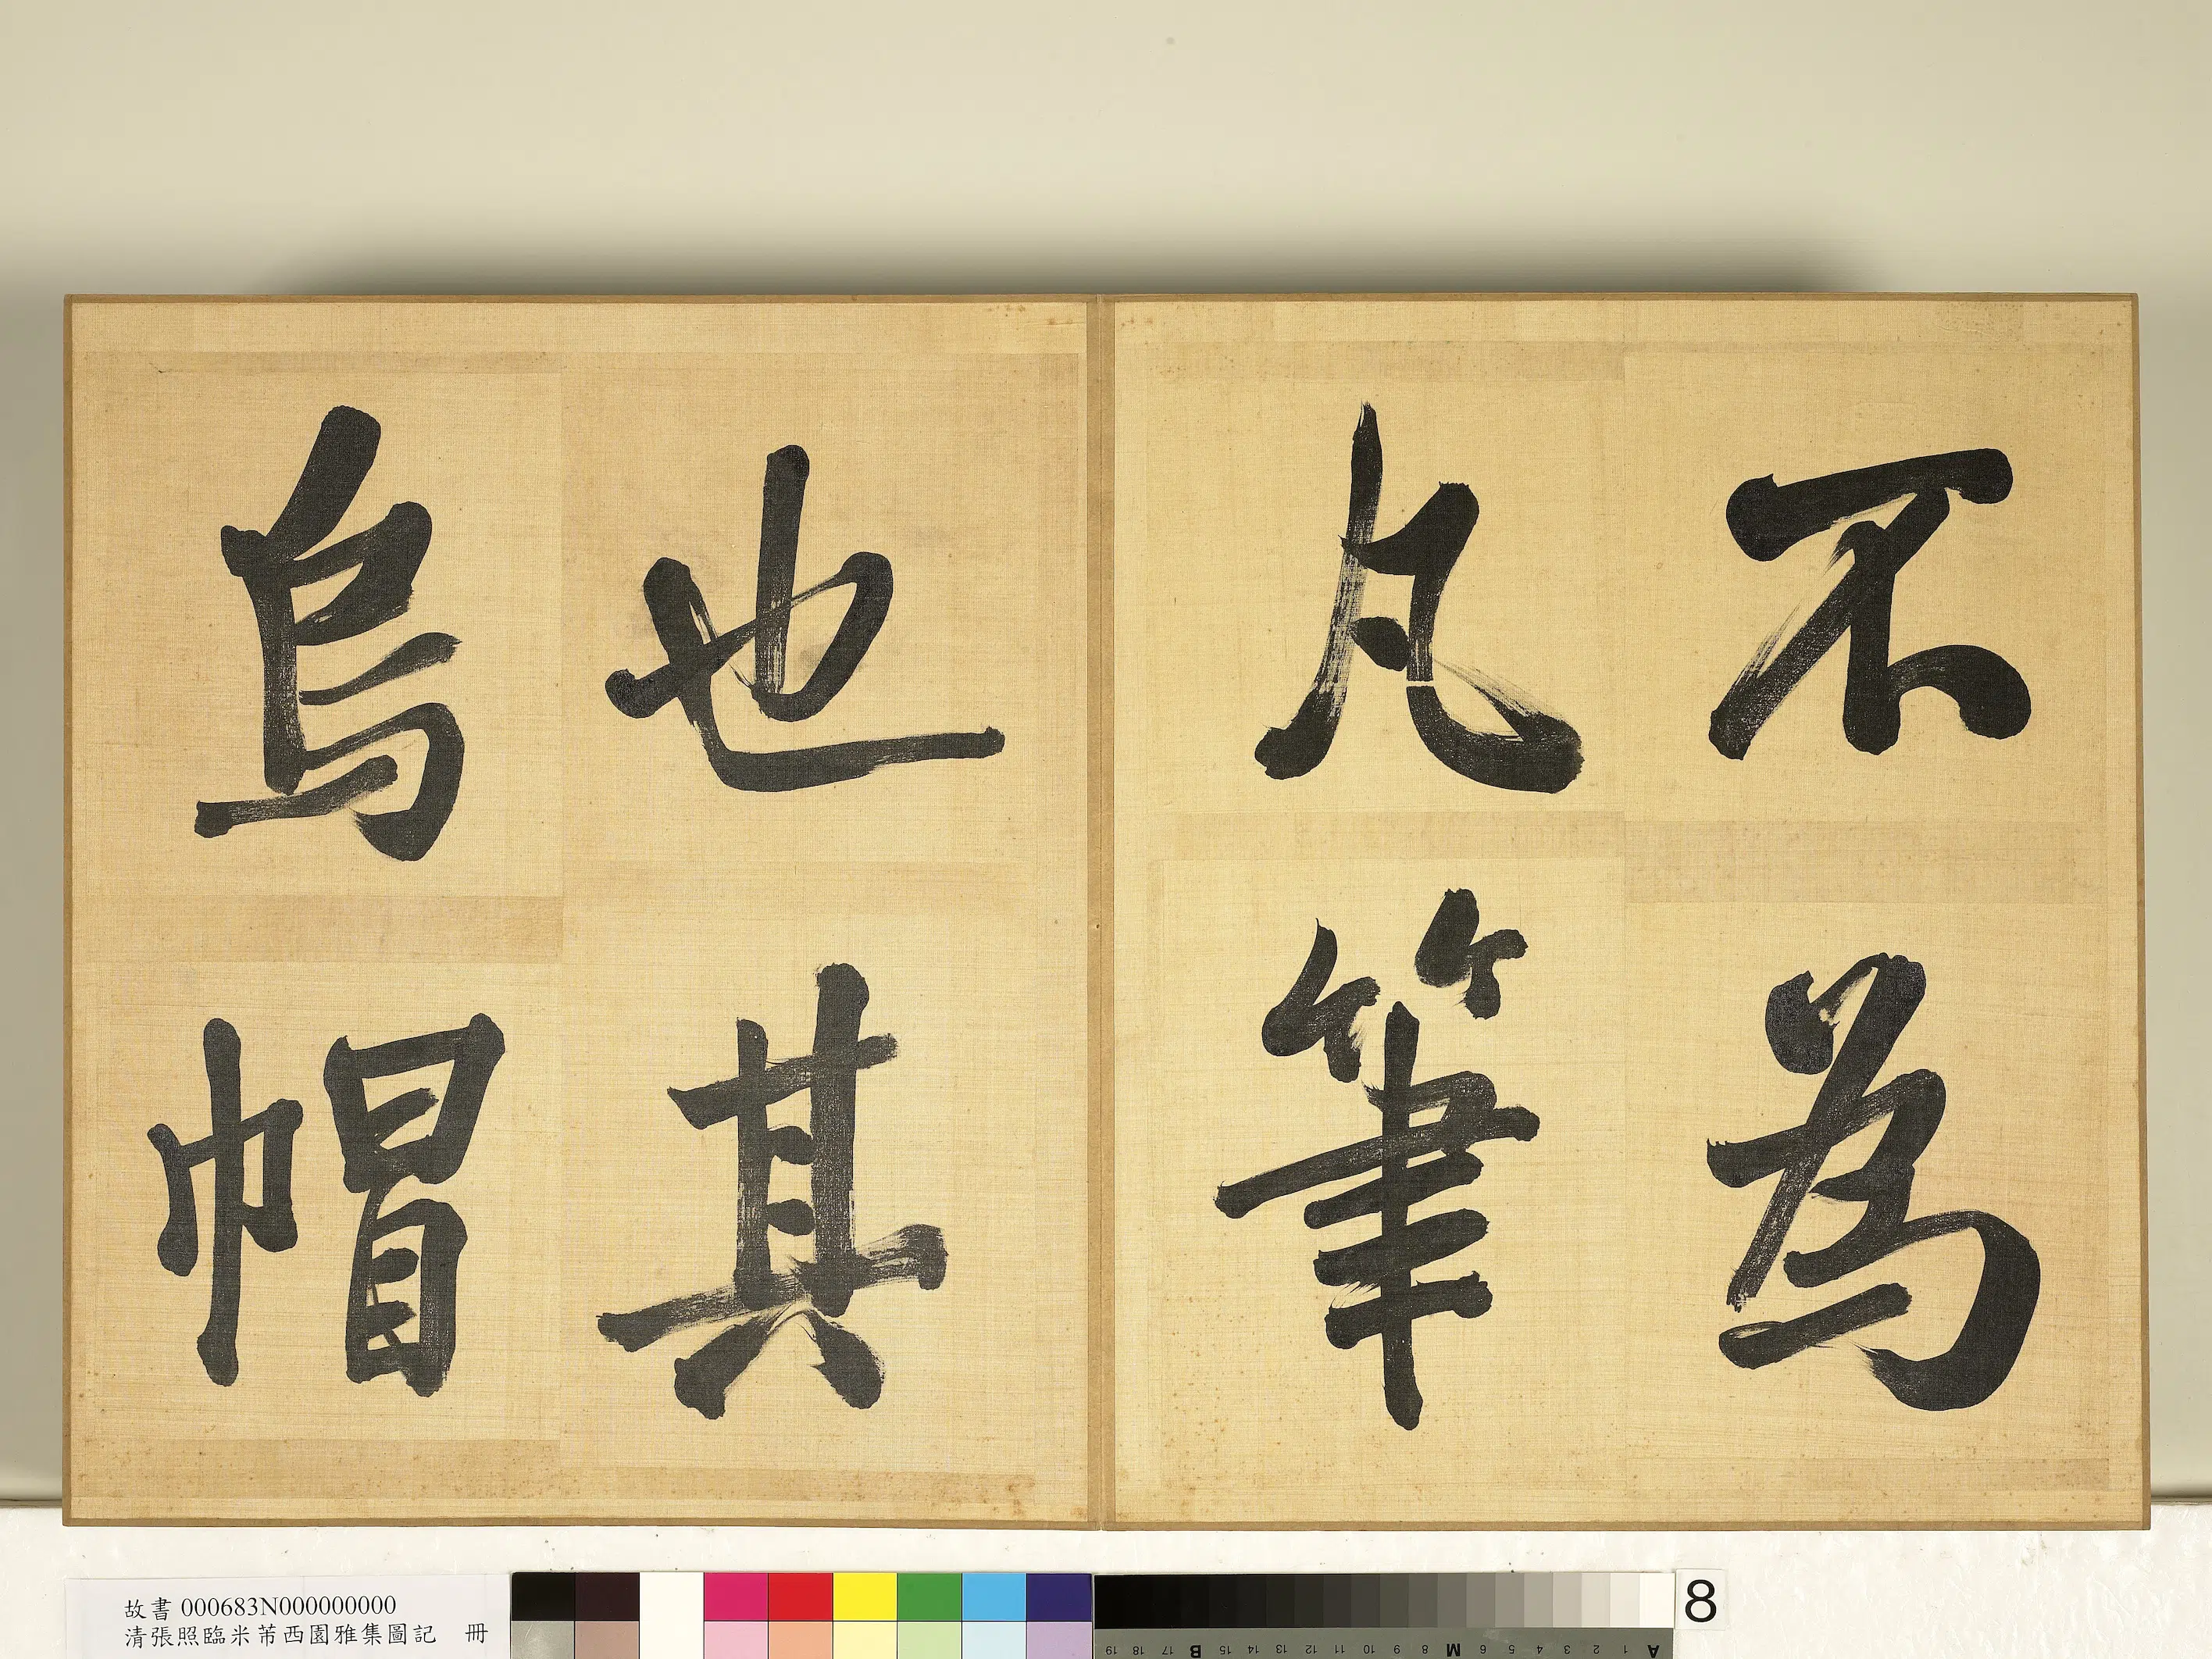 不為
凡筆
也其
烏帽
故書 000683N000000000
清張照臨米芾西園雅集圖記 冊
8
A 1 2 3 4 5 6 M 8 9 10 11 12 13 14 15 B 17 18 19